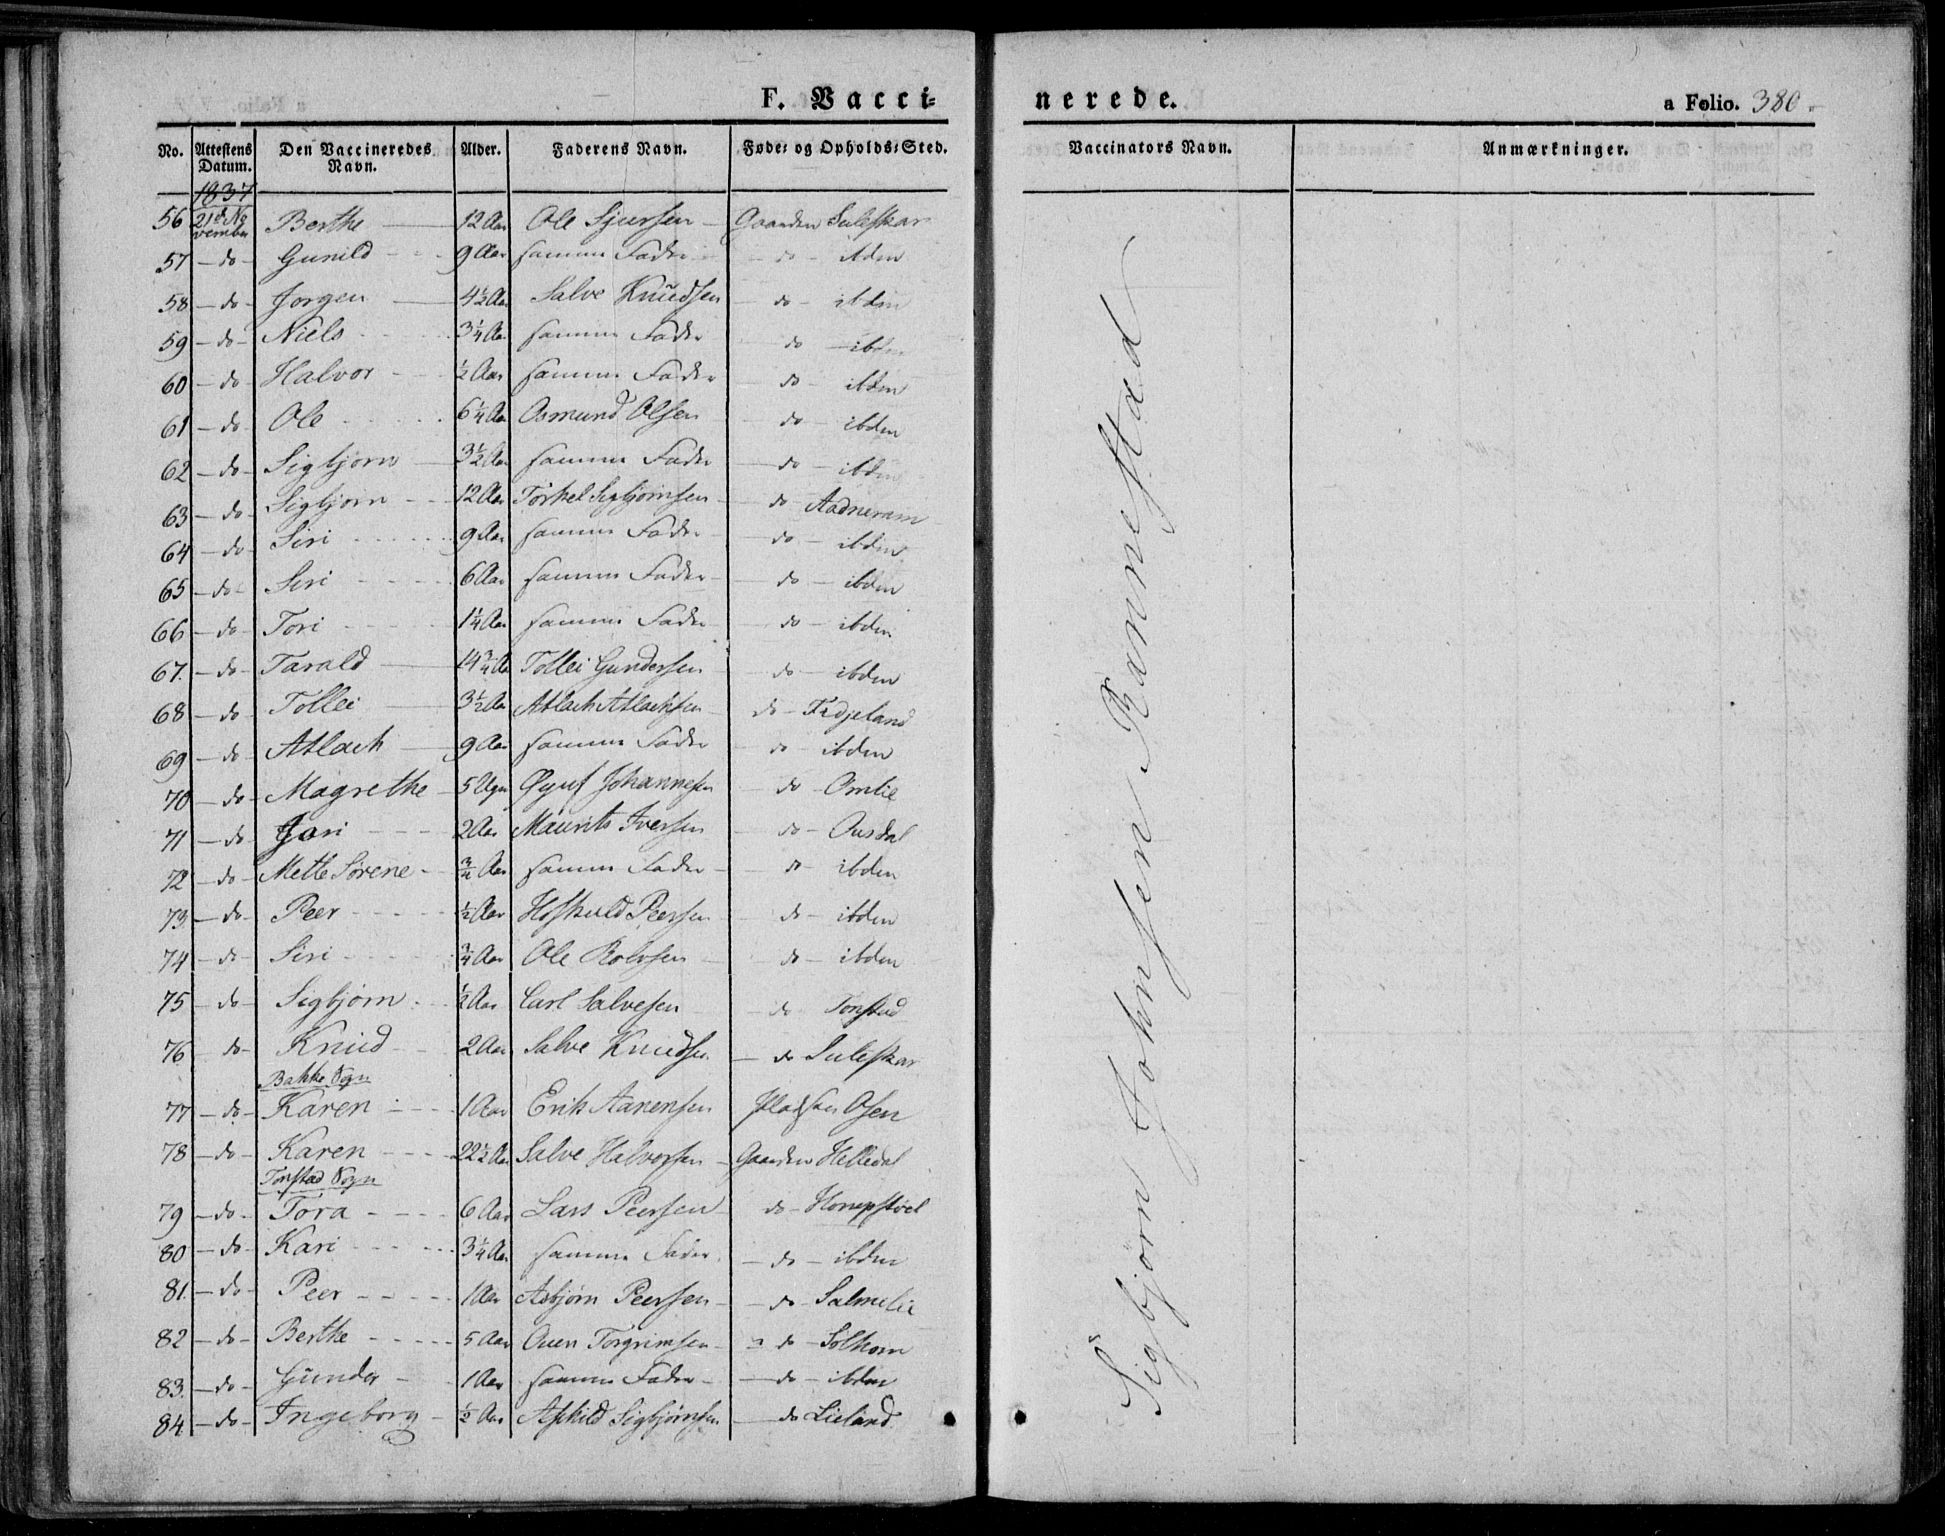 F. Vacci=
nerede.
a Folio. 380.
No. Attestens Datum. Den Vaccineredes Navn. Alder. Faderens Navn. Føde= og Opholds=Sted. Vaccinators Navn. Anmærkninger.
1837
56 21de November Berthe 12 Aar Ole Sjursen Gaarden Suleskar
57 - do - Gunild 9 Aar samme Fader - do - ibden
58 - do - Jørgen 4½ Aar Salve Knudsen - do - ibden
59 - do - Niels 3¼ Aar samme Fader do - ibden
60 - do - Halvor ½ Aar samme Fader do - ibden
61 - do - Ole 6¼ Aar Osmund Olsen do - ibden
62 - do - Sigbjørn 3½ Aar samme Fader - do - ibden
63 - do - Sigbjørn 12 Aar Torkel Sigbjørnsen - do - Aadneram
64 - do - Siri 9 Aar samme Fader - do - ibden
65 - do - Siri 6 Aar samme Fader - do - ibden
66 - do Tori 1¼ Aar samme Fader - do - ibden
67. - do - Tarald 14¾ Aar Tollei Gundersen do - ibden
68 - do Tollei 3½ Aar Atlach Atlachsen do - Fidjeland
69 - do Atlach 9 Aar samme Fader - do - ibden
70 - do - Magrethe 5 Uger Øyuf Johannesen - do - Omlie
71 - do Jori 2 Aar Maurits Iversen - do - Ousdal
72 - do - Mette Sørene ¾ Aar samme Fader - do - ibden
73 - do - Peer ½ Aar Hoskuld Peersen - do - ibden
74 - do - Siri ¾ Aar Ole Rolvsen do - ibden
75 - do - Sigbjørn ½ Aar Carl Salvesen - do Tonstad
76 - do - Knud 2 Aar Salve Knudsen - do Suleskar
Bakke Sogn
77 - do - Karen 1 Aar Erik Aanensen Pladsen Osen
78 - do - Karen 22½ Aar Salve Halvorsen - Gaarden Helledal
Tonstad Sogn
79 - do - Tora 6 Aar Lars Peersen do - Hompstøel
80 - do - Kari 3¼ Aar samme Fader - do - ibden
81. - do - Peer 1 Aar Asbjørn Peersen - do - Salmelie
82 - do - Berthe 5 Aar Ouen Torgrimsen - do - Solhom
83. - do - Gunder 1 Aar samme Fader - do - ibden
84 - do - Ingeborg ½ Aar Askild Sigbjørnsen - do Lieland.
Sigbjørn Johnsen Rannestad